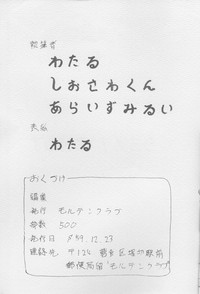 執筆者
わたる
しおさわくん
あらいずみるい
表紙
わたる
おくづけ
編集
発行 モルテンクラブ
部数 300
発行日 S59.12.23
連絡先 〒124 葛飾区
郵便局留 モルテンクラブ